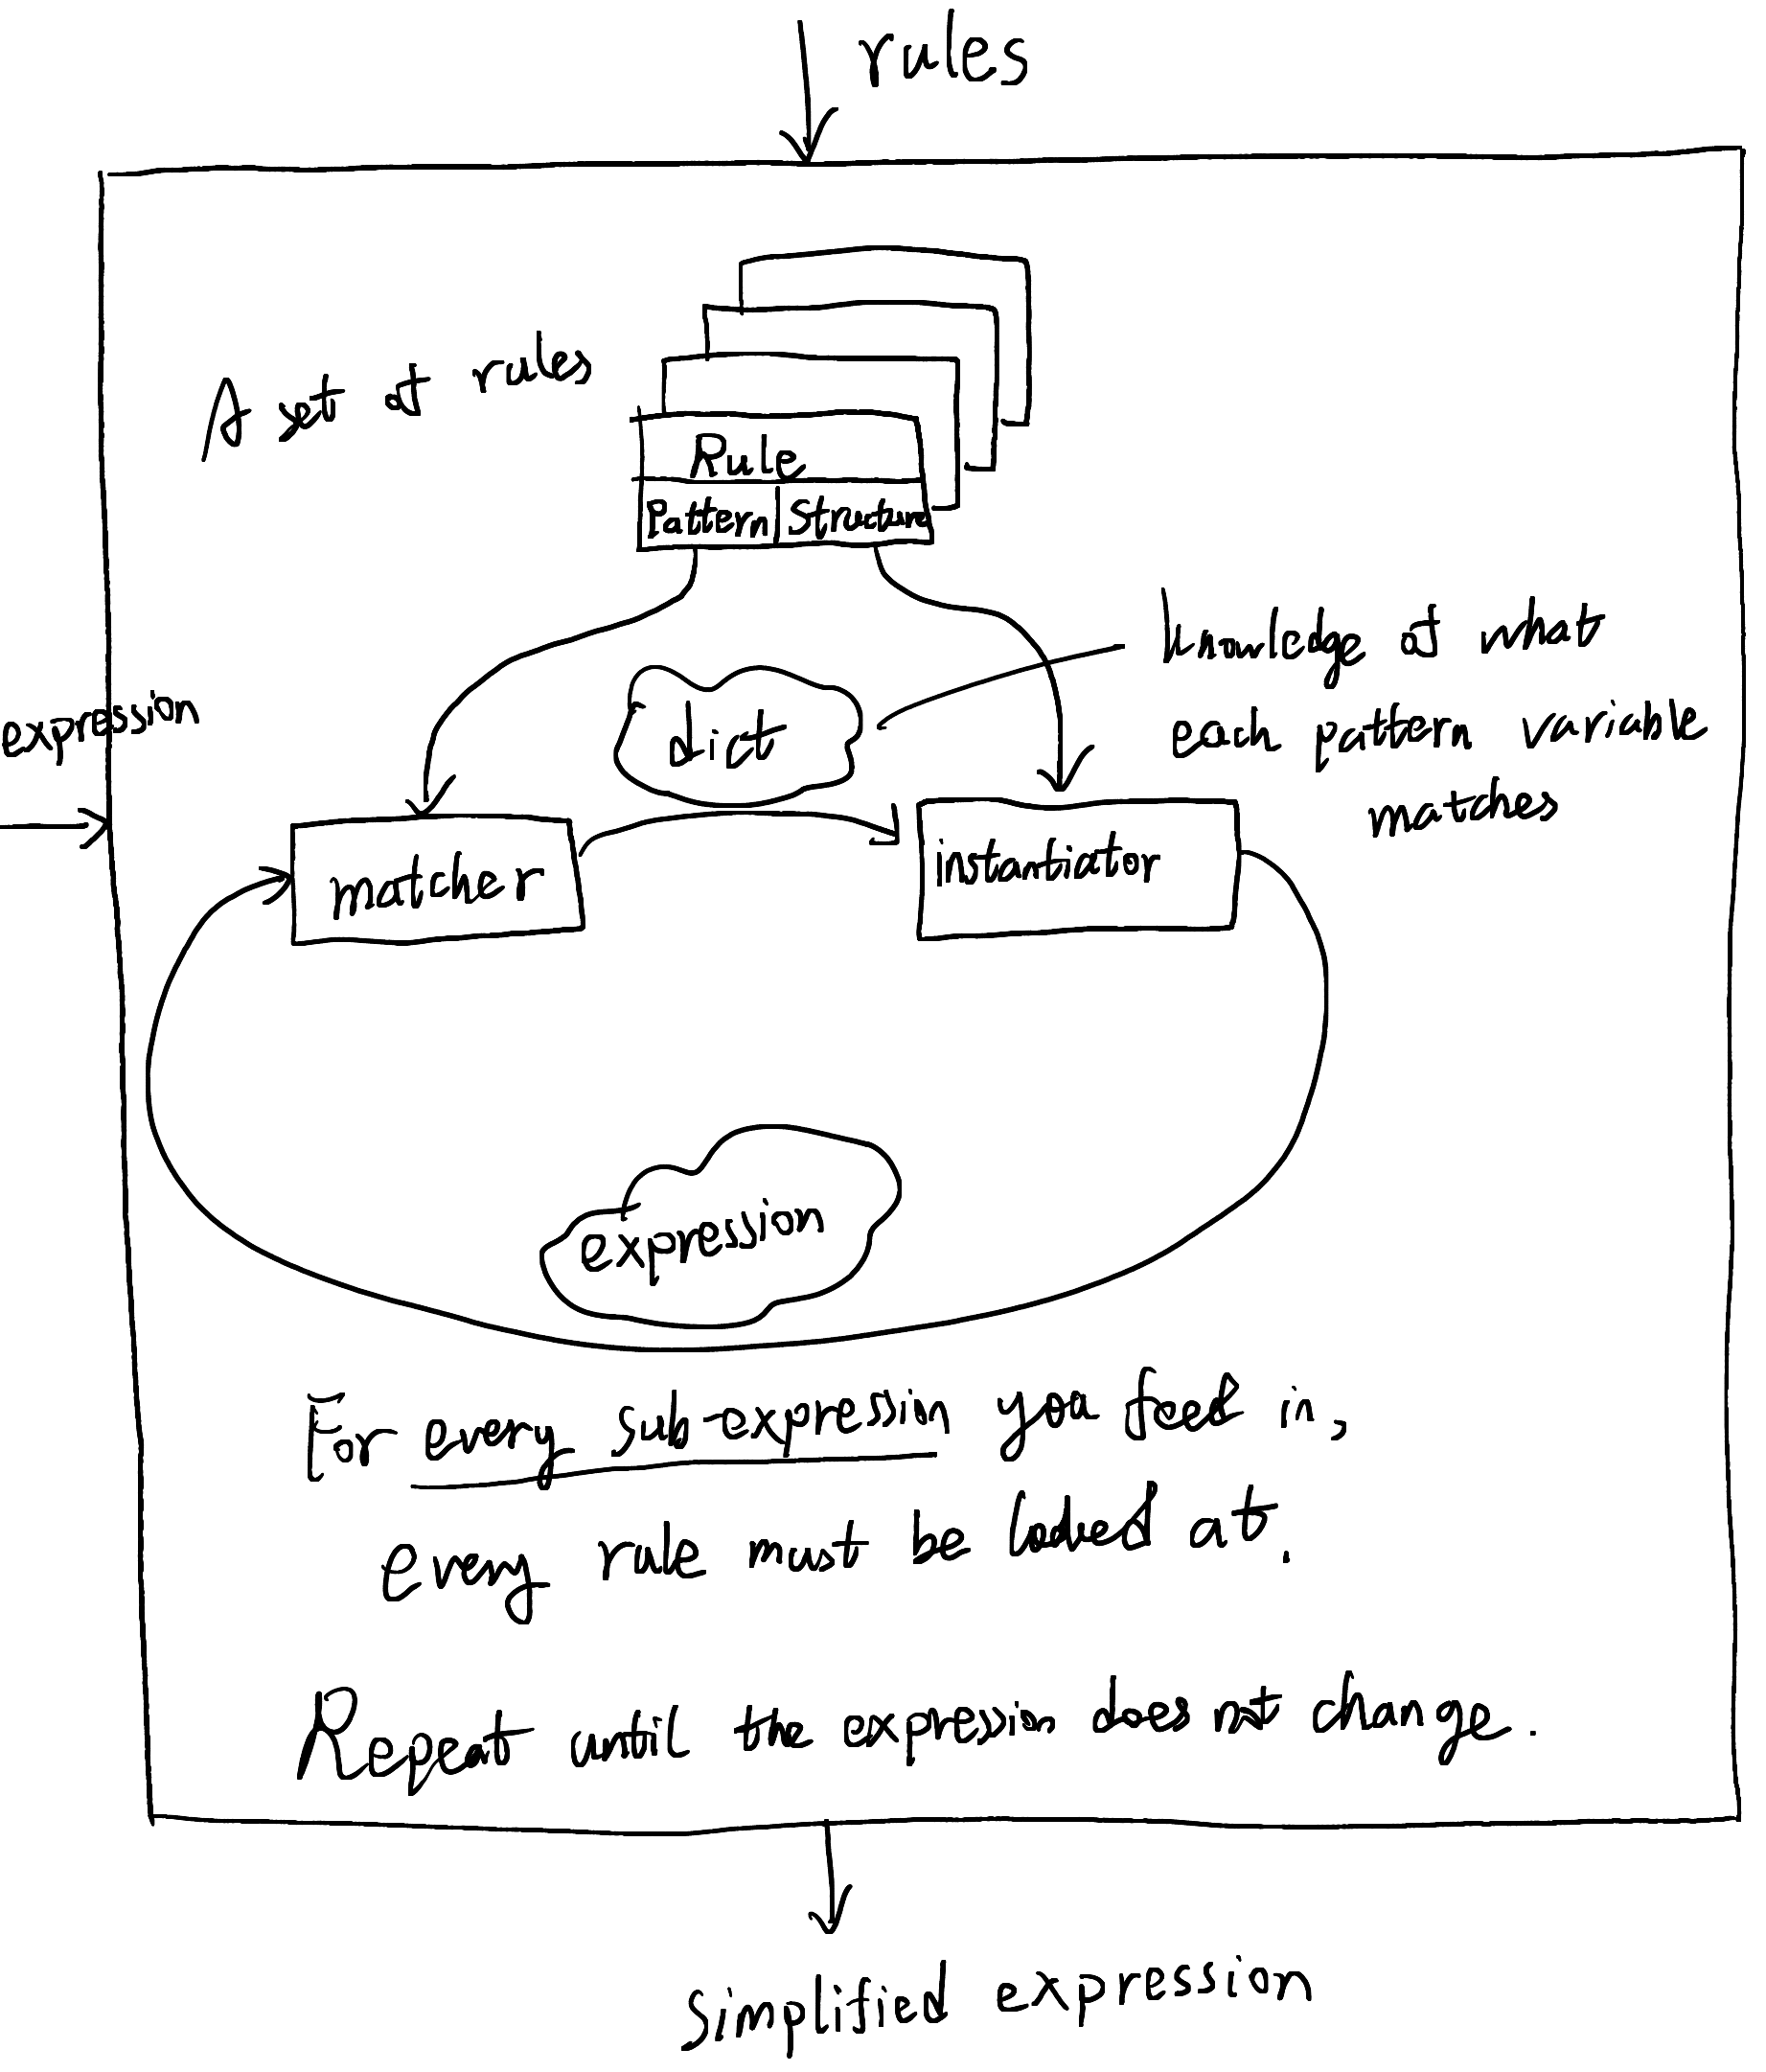 rules
A set of rules
Rule
Pattern
Structure
knowledge of what
each pattern variable
matches
expression
dict
matcher
instantiator
expression
For every sub-expression you feed in,
every rule must be looked at.
Repeat until the expression does not change.
Simplified expression